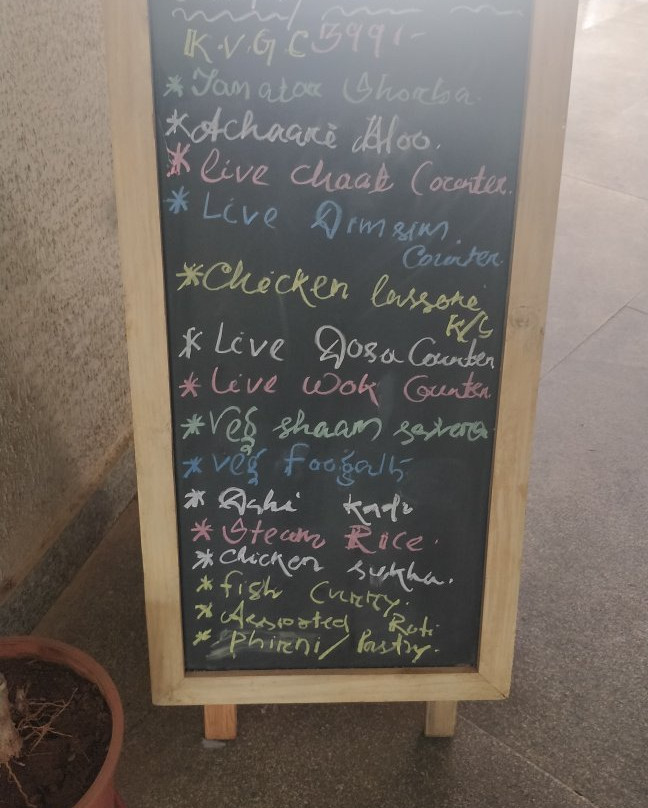 K.V.G.C 599/-
* Tamatar Shorba.
* Achaari Aloo.
* live chaat Counter.
* Live Dimsum
Counter.
* Chicken lassoni
K/G
* Live Dosa Counter
* Live Wok Counter
* Veg shaam savera
* veg foogath
* Dahi Kadi
* Steam Rice.
* chicken sukha.
* fish Curry.
* Assorted Roti
* Phirni/Pastry.